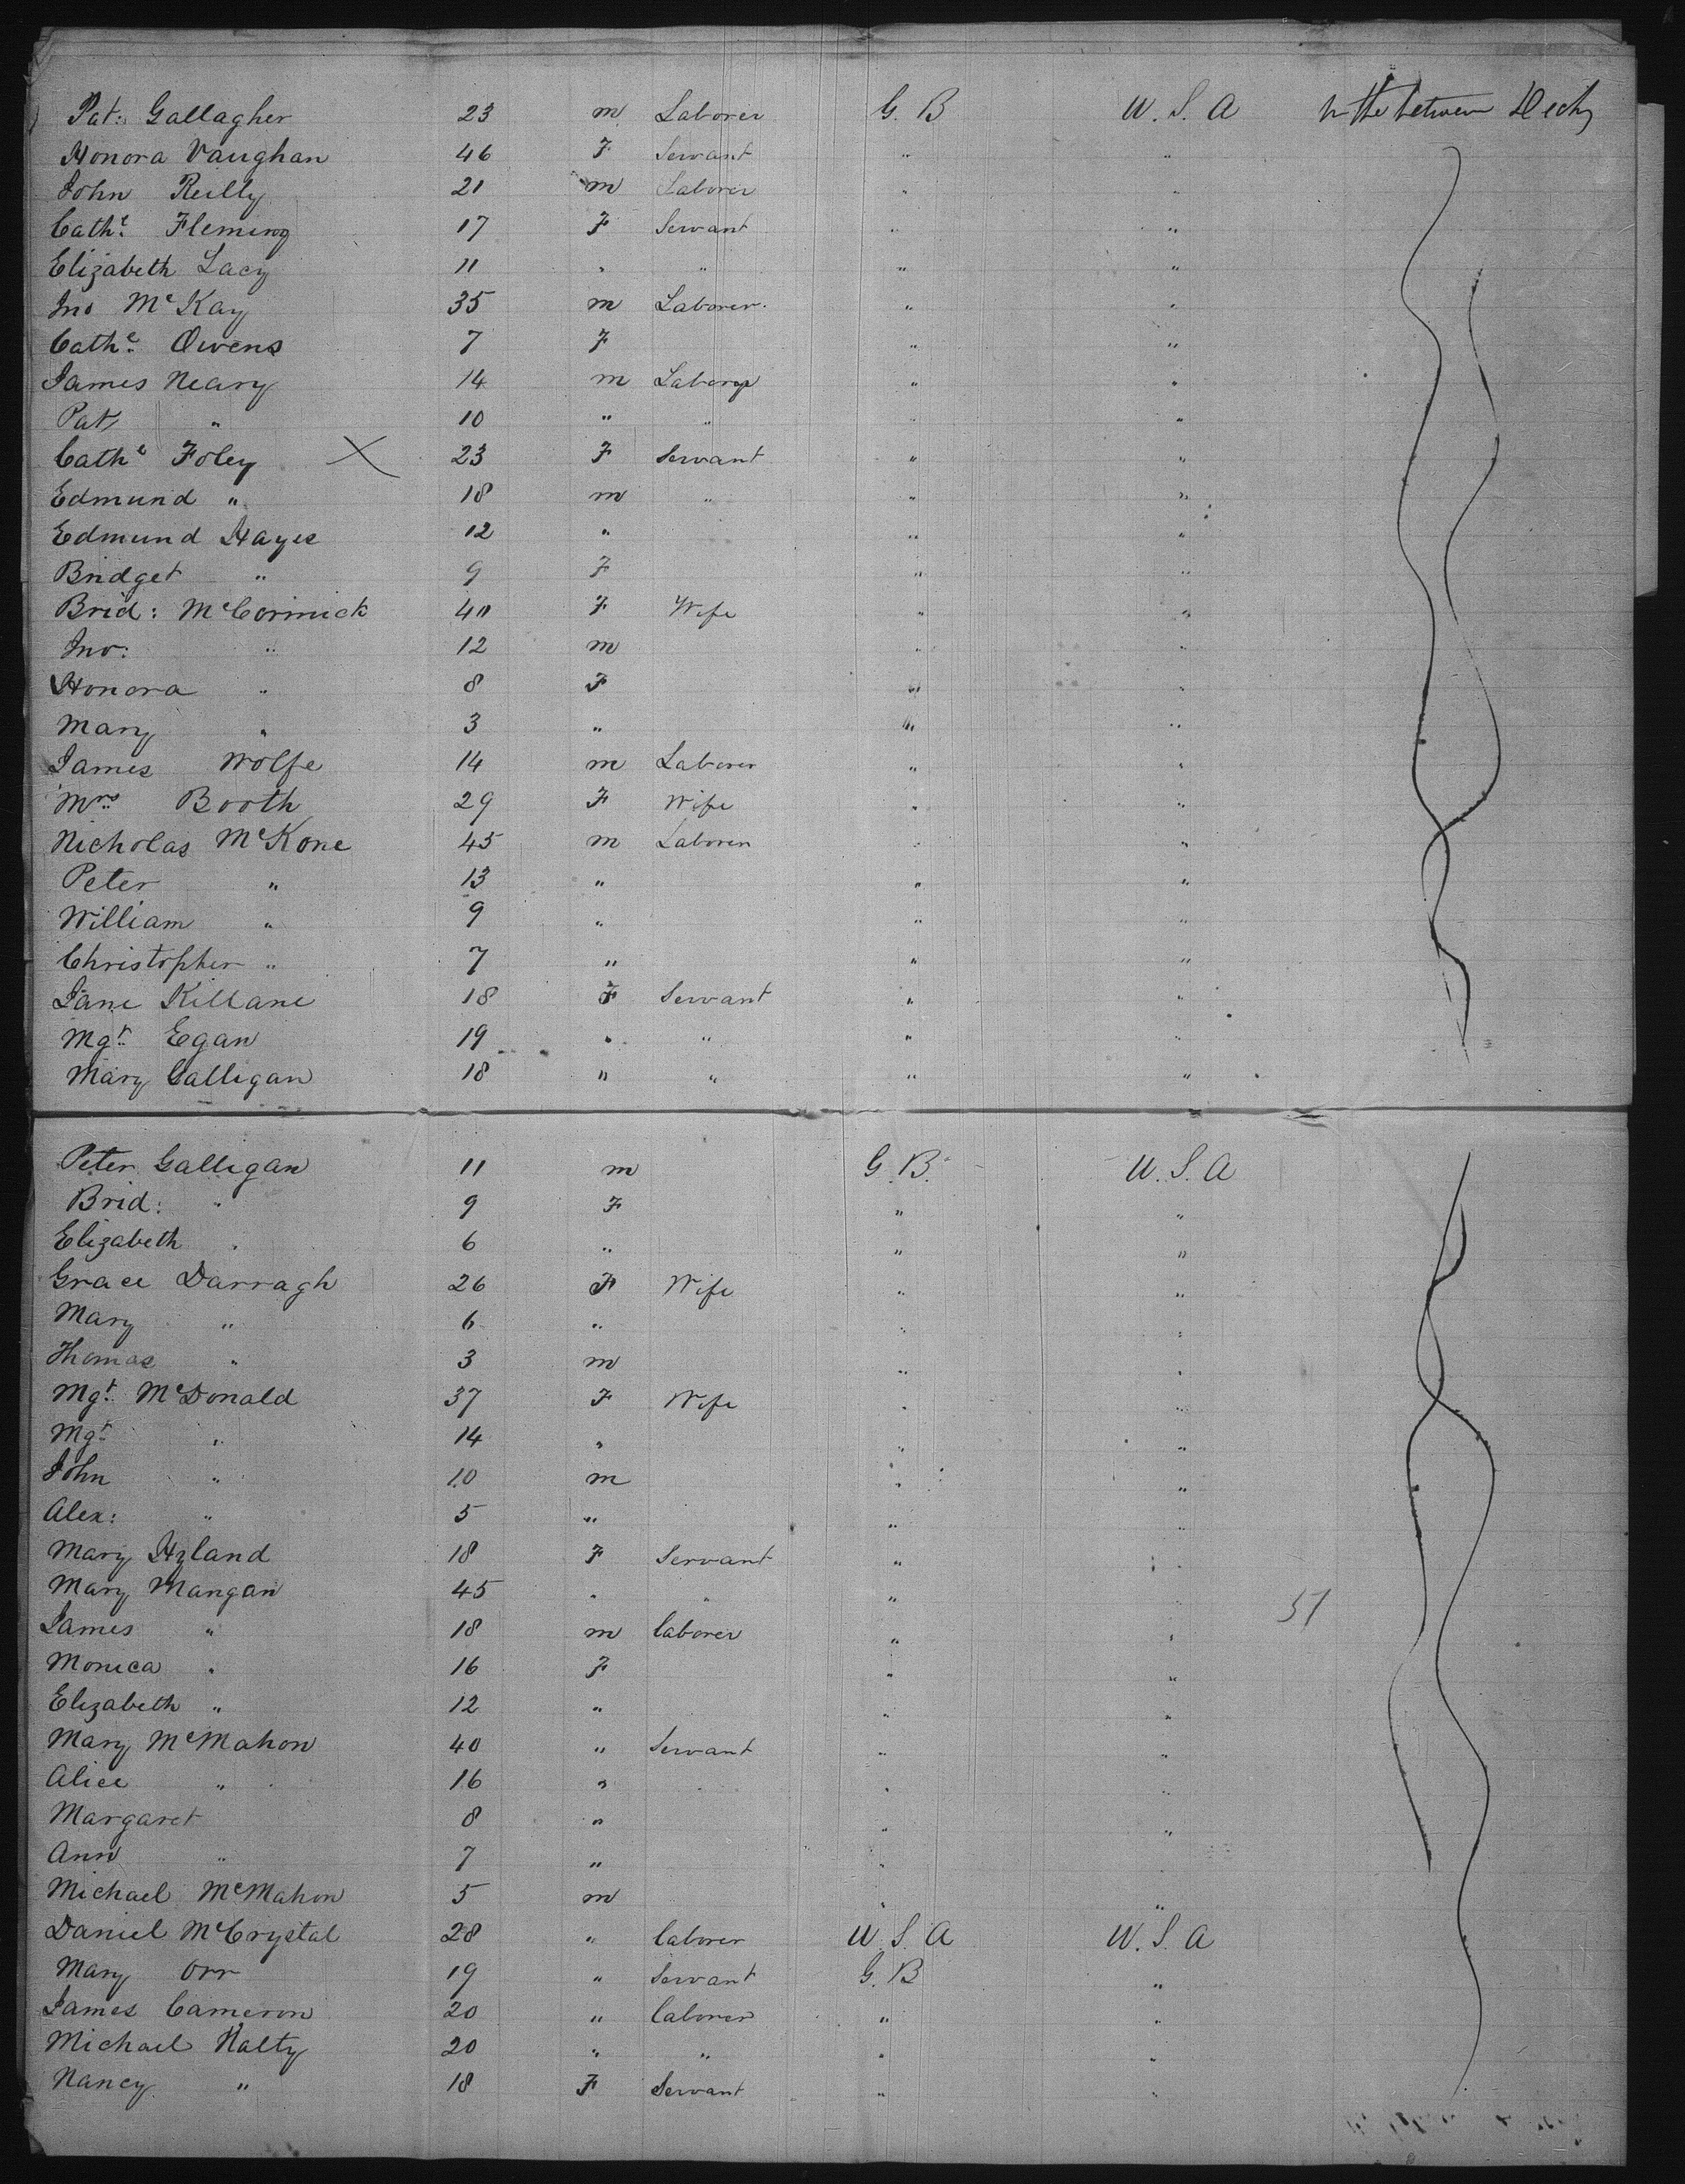 Pat: Gallagher 23 m Laborer G. B U. S. A In the between Decks
Honora Vaughan 46 F Servant " "
John Reilly 21 m Laborer " "
Cathe Fleming 17 F Servant " "
Elizabeth Lacy 11 " " " "
Jno McKay 35 m Laborer " "
Cathe Owens 7 F " "
James Neary 14 m Laborer " "
Pat " 10 " " "
Cathe Foley X 23 F Servant " "
Edmund " 18 m " " "
Edmund Hayes 12 " " "
Bridget " 9 F " "
Brid: McCormick 40 F Wife " "
Jno: " 12 m " "
Honora " 8 F " "
Mary " 3 " " "
James Wolfe 14 m Laborer " "
Mrs Booth 29 F Wife " "
Nicholas McKone 45 m Laborer " "
Peter " 13 " " "
William " 9 " " "
Christopher " 7 " " "
Jane Killane 18 F Servant " "
Mgt Egan 19 " " " "
Mary Galligan 18 " " " "
Peter Galligan 11 m G. B. U. S. A
Brid: " 9 F " "
Elizabeth " 6 " " "
Grace Darragh 26 F Wife " "
Mary " 6 " " "
Thomas " 3 m " "
Mgt McDonald 37 F Wife " "
Mgt " 14 " " "
John " 10 m " "
Alex: " 5 " " "
Mary Hyland 18 F Servant " "
Mary Mangan 45 " " " " 51
James " 18 m laborer " "
Monica " 16 F " "
Elizabeth " 12 " " "
Mary McMahon 40 " Servant " "
Alice " 16 " " "
Margaret 8 " " "
Ann " 7 " " "
Michael McMahon 5 m " "
Daniel McCrystal 28 " laborer U. S. A U. S. A
Mary Orr 19 " Servant G. B "
James Cameron 20 " laborer " "
Michael Nalty 20 " " " "
Nancy " 18 F Servant " "